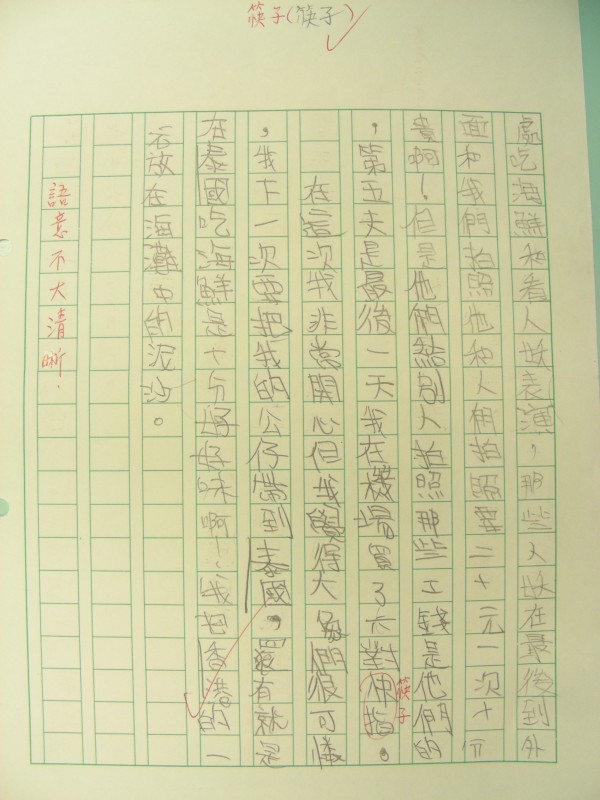 筷子(筷子)
處吃海鮮和看人妖表演，那些人妖在最後到外
面和我們拍照他和人相拍照要二十元一次十分
貴啊！但是他們給別人拍照那些工錢是他們的
，第五天是最後一天我在機場買了六對指。
筷子
在這次我非常開心但我覺得大象們很可憐
，我下一次要把我的公仔帶到泰國，還有就是
在泰國吃海鮮是十分好好味啊！我把香港的一
石放在海灘中的泥沙。
語意不大清晰．